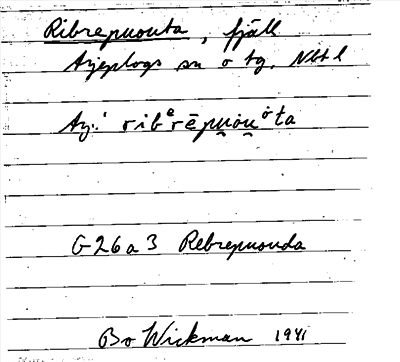 Ribrepuouta, fjäll
Arjeplogs sn o tg. Nbt l
Arj: ribᵉrēpu̯òu̯òta
G26a3 Rebrepuouda
Bo Wickman 1941